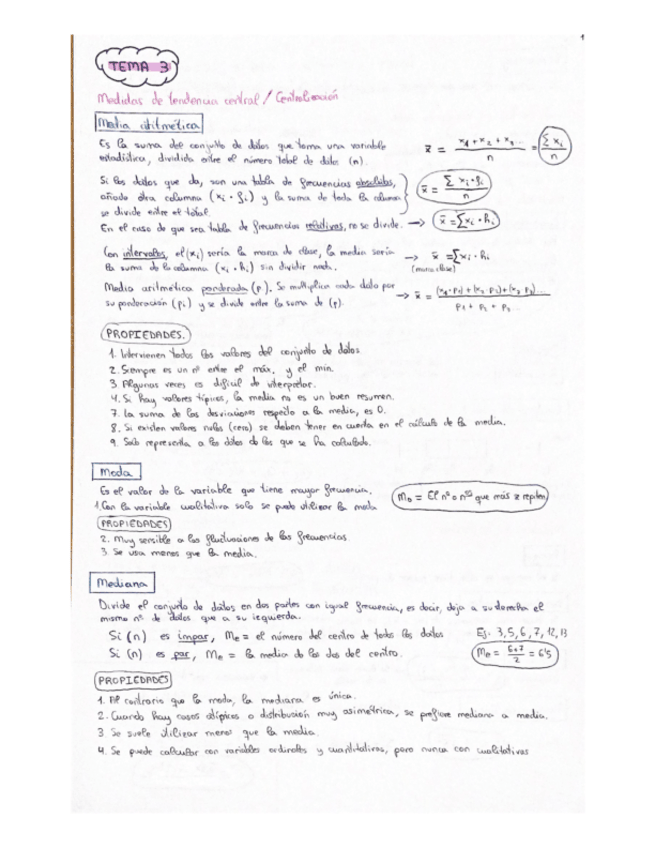 1
TEMA 3
Medidas de tendencia central / Centralización
Media aritmética
Es la suma del conjunto de datos que toma una variable
estadística, dividida entre el número total de datos (n).
x̄ = (x₁ + x₂ + x₃...) / n = Σ xᵢ / n
Si los datos que da, son una tabla de frecuencias absolutas,
añado otra columna (xᵢ · fᵢ) y la suma de toda la columna
se divide entre el total.
x̄ = Σ xᵢ · fᵢ / n
En el caso de que sea tabla de frecuencias relativas, no se divide. → x̄ = Σ xᵢ · hᵢ
Con intervalos, el (xᵢ) sería la marca de clase, la media sería → x̄ = Σ xᵢ · hᵢ
la suma de la columna (xᵢ · hᵢ) sin dividir nada. (marca clase)
Media aritmética ponderada (p). Se multiplica cada dato por
su ponderación (pᵢ) y se divide entre la suma de (p).
→ x̄ = (x₁ · p₁) + (x₂ · p₂) + (x₃ · p₃)... / p₁ + p₂ + p₃...
PROPIEDADES.
1. Intervienen todos los valores del conjunto de datos.
2. Siempre es un nº entre el máx. y el mín.
3. Algunas veces es difícil de interpretar.
4. Si hay valores típicos, la media no es un buen resumen.
7. La suma de las desviaciones respecto a la media, es 0.
8. Si existen valores nulos (cero) se deben tener en cuenta en el cálculo de la media.
9. Solo representa a los datos de los que se ha calculado.
Moda
Es el valor de la variable que tiene mayor frecuencia.
1. Con la variable cualitativa solo se puede utilizar la moda
Mo = El nº o nºs que más se repiten
PROPIEDADES
2. Muy sensible a las fluctuaciones de las frecuencias
3. Se usa menos que la media.
Mediana
Divide el conjunto de datos en dos partes con igual frecuencia, es decir, deja a su derecha el
mismo nº de datos que a su izquierda.
Si (n) es impar, Me = el número del centro de todos los datos
Ej. 3, 5, 6, 7, 12, 13
Si (n) es par, Me = la media de los dos del centro.
Me = 6+7 / 2 = 6'5
PROPIEDADES
1. Al contrario que la moda, la mediana es única.
2. Cuando hay casos atípicos o distribución muy asimétrica, se prefiere mediana a media.
3 Se suele utilizar menos que la media.
4. Se puede calcular con variables ordinales y cuantitativas, pero nunca con cualitativas